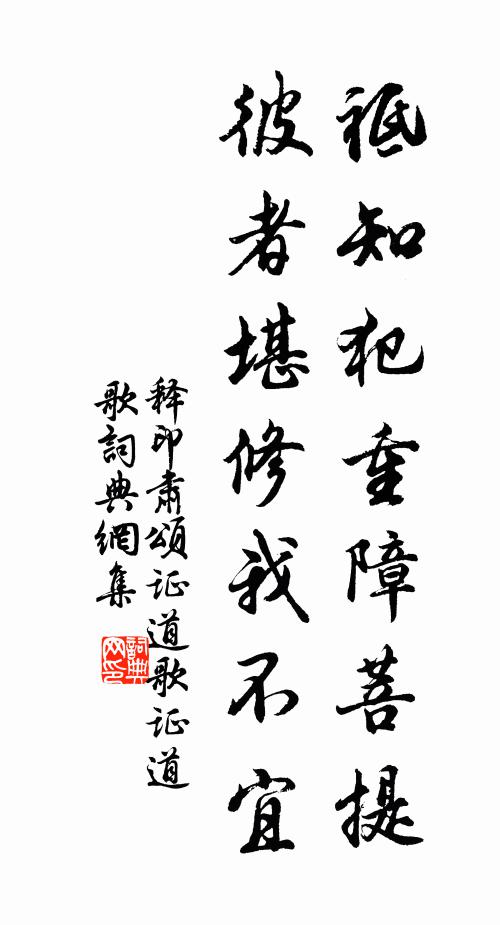 祗知犯重障菩提
彼者堪修我不宜
释印肃頌证道歌证道
歌詞典網集
詞典
网印